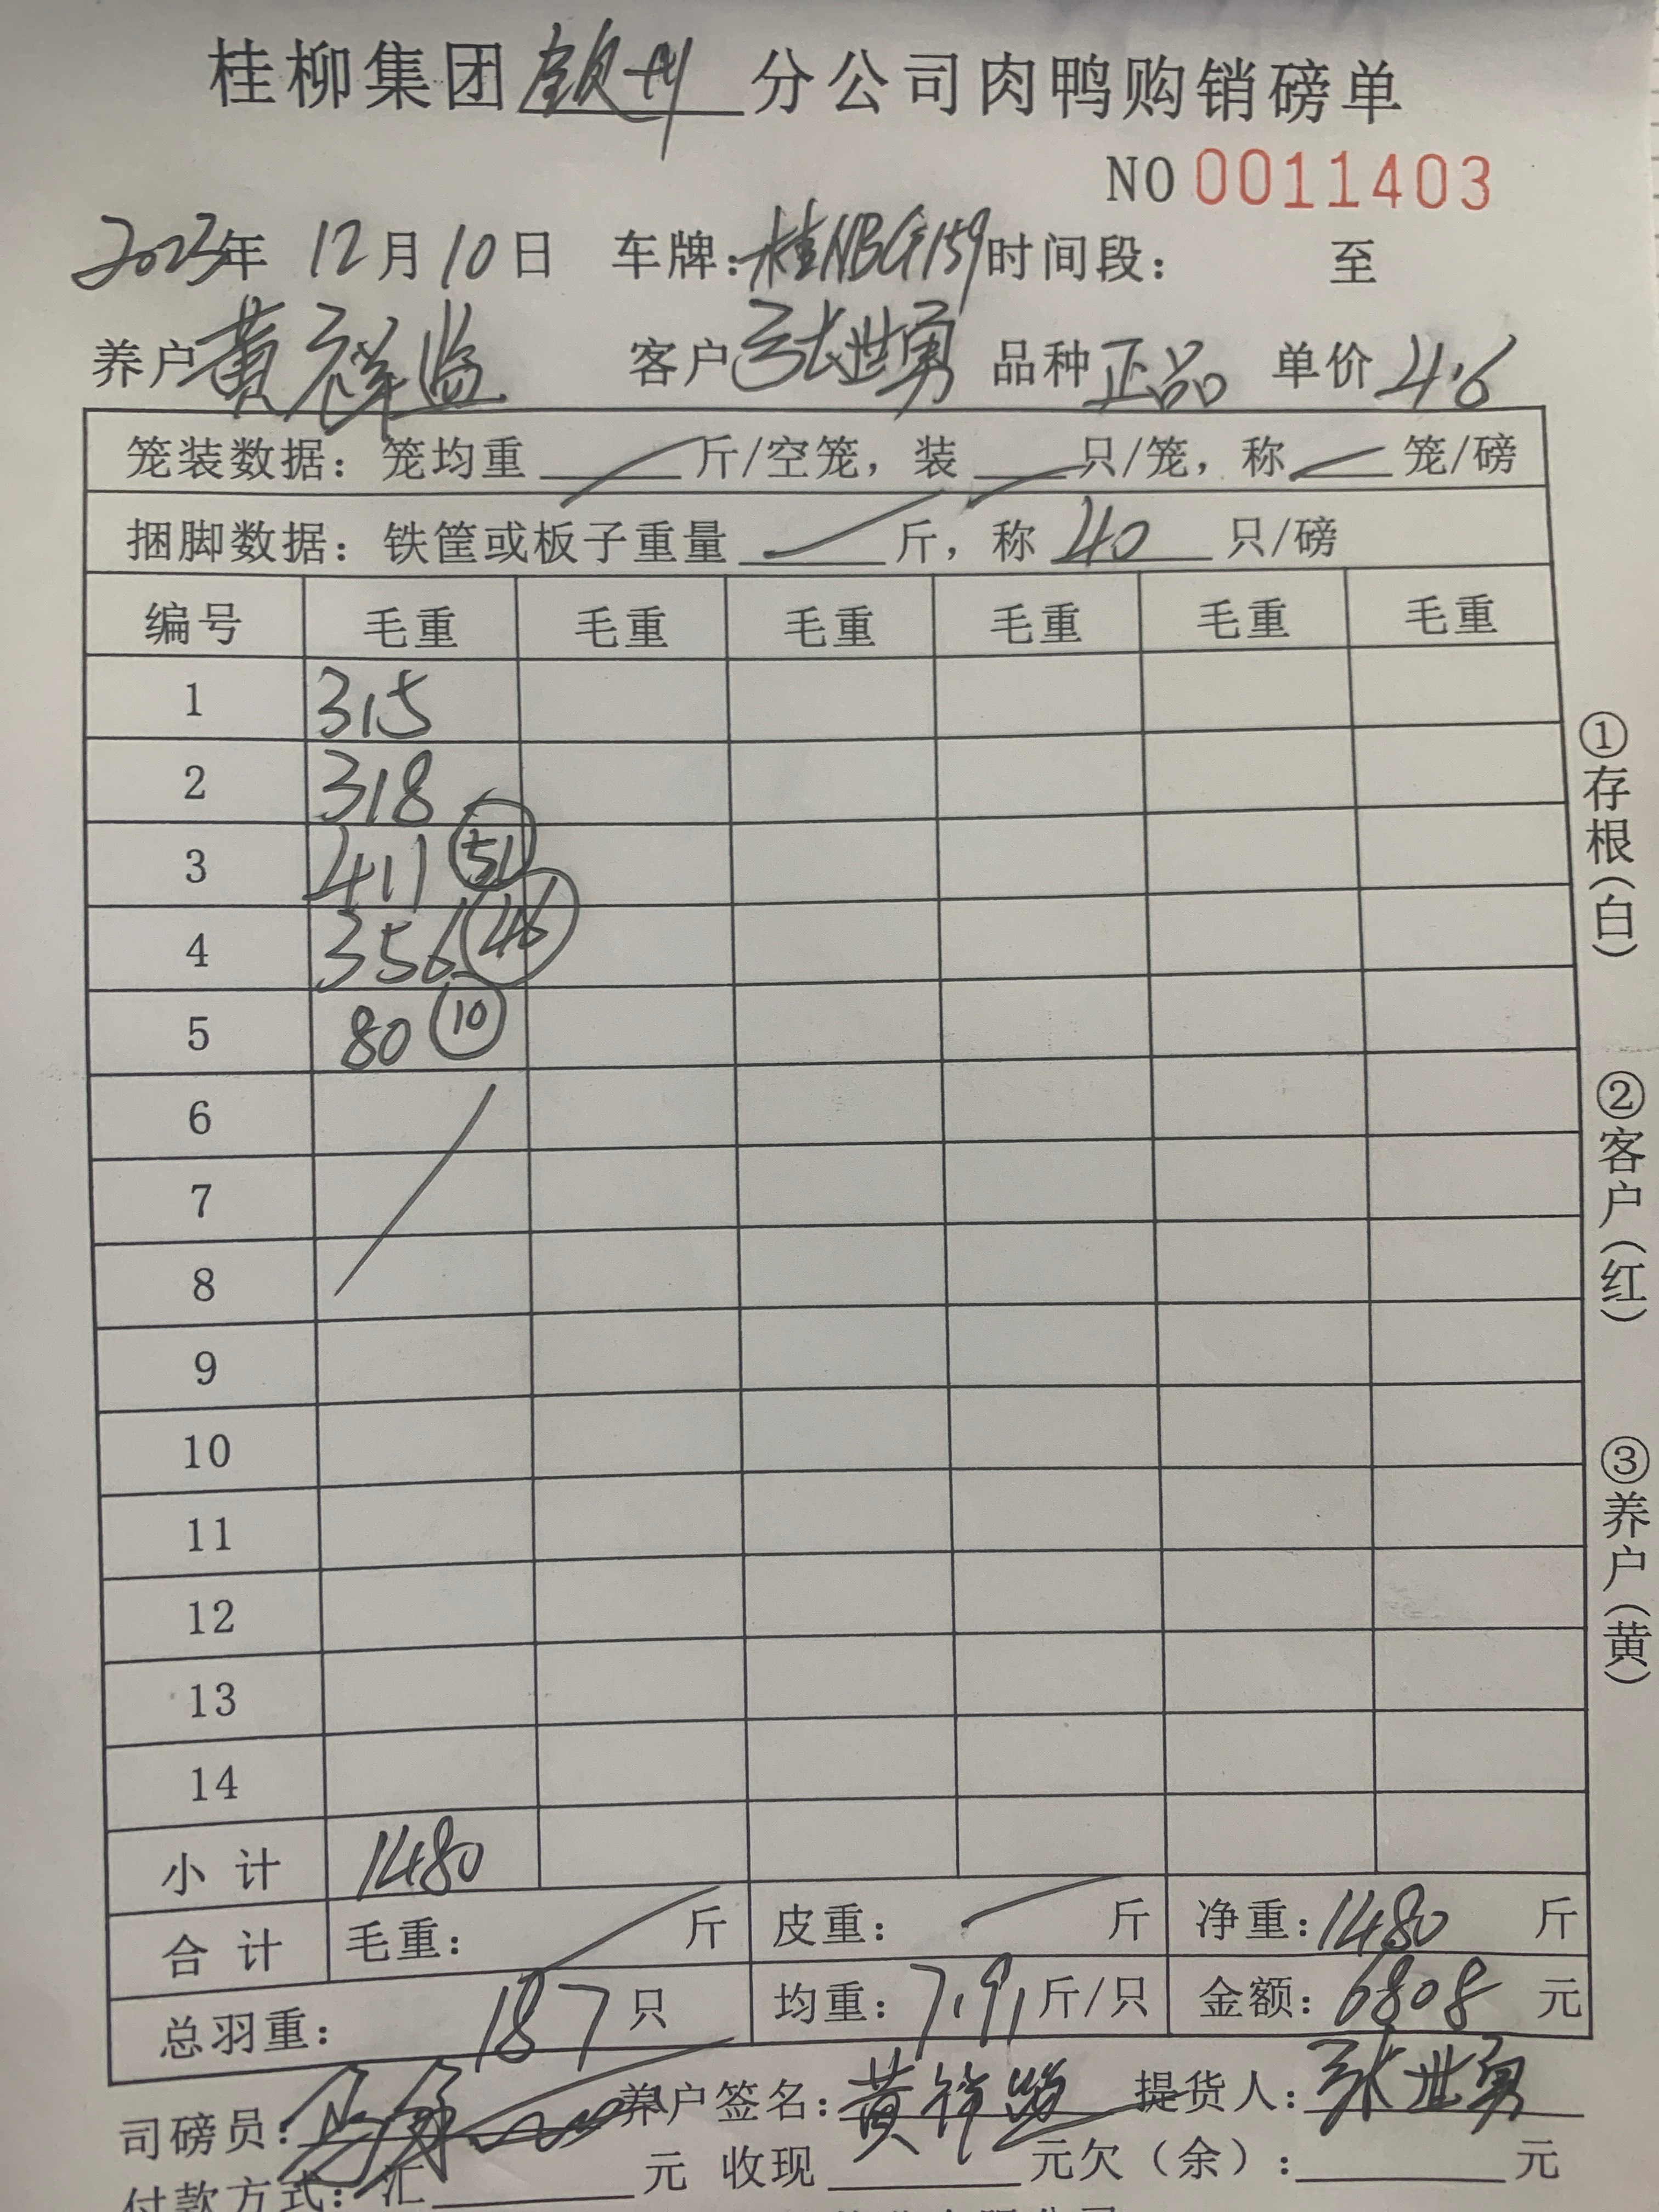 桂柳集团钦州分公司肉鸭购销磅单
NO 0011403
2023年 12月10日 车牌:桂NBG159时间段: 至
养户黄祥益 客户张世勇 品种正品 单价4.6
笼装数据: 笼均重 斤/空笼, 装 只/笼, 称 笼/磅
捆脚数据: 铁筐或板子重量 斤, 称 40 只/磅
编号 毛重 毛重 毛重 毛重 毛重 毛重
1 315
2 318
3 411 (51)
4 356 (46)
5 80 (10)
6
7
8
9
10
11
12
13
14
小 计 1480
合 计 毛重: 斤 皮重: 斤 净重:1480 斤
总羽重: 187只 均重:7.91斤/只 金额:6808 元
司磅员: 养户签名:黄祥益 提货人:张世勇
付款方式: 汇 元 收现 元欠 (余): 元
①存根(白)
②客户(红)
③养户(黄)